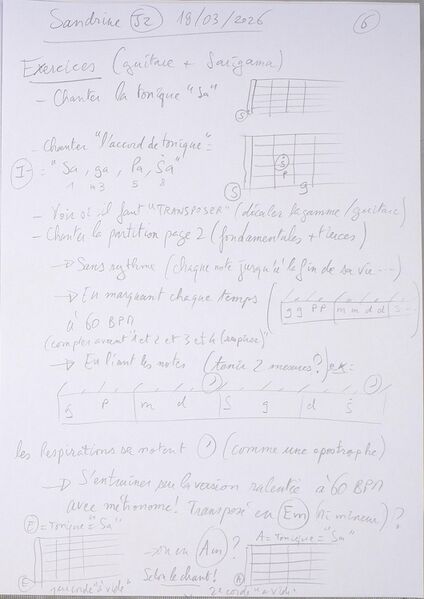 Sandrine J2 18/03/2026 6
Exercices (guitare + Sarigama)
- Chanter la tonique "Sa"
S
- Chanter "l'accord de tonique" =
I- = "Sa, ga, Pa, Ṡa"
1 5 8
Ṡ
P
g
S
- Voir s'il faut "TRANSPOSER" (décaler la gamme/guitare)
- Chanter la partition page 2 (fondamentales + tierces)
→ Sans rythme (chaque note jusqu'à la fin de sa vie...)
→ En marquant chaque temps
g g P P m m d d
à 60 BPM
(compter avant "1 et 2 et 3 et 4 ")
→ En liant les notes (tenir 2 mesures?) ex:
S P m d S g d ṡ
les respirations se notent ' (comme une apostrophe)
→ S'entraîner sur la version ralentée à 60 BPM
avec métronome! Transposé en Em (mi mineur)?
E = Tonique = "Sa" A = Tonique = "Sa"
→ ou en Am?
Selon le chant!
E A
corde "à vide" 2e corde "à vide"